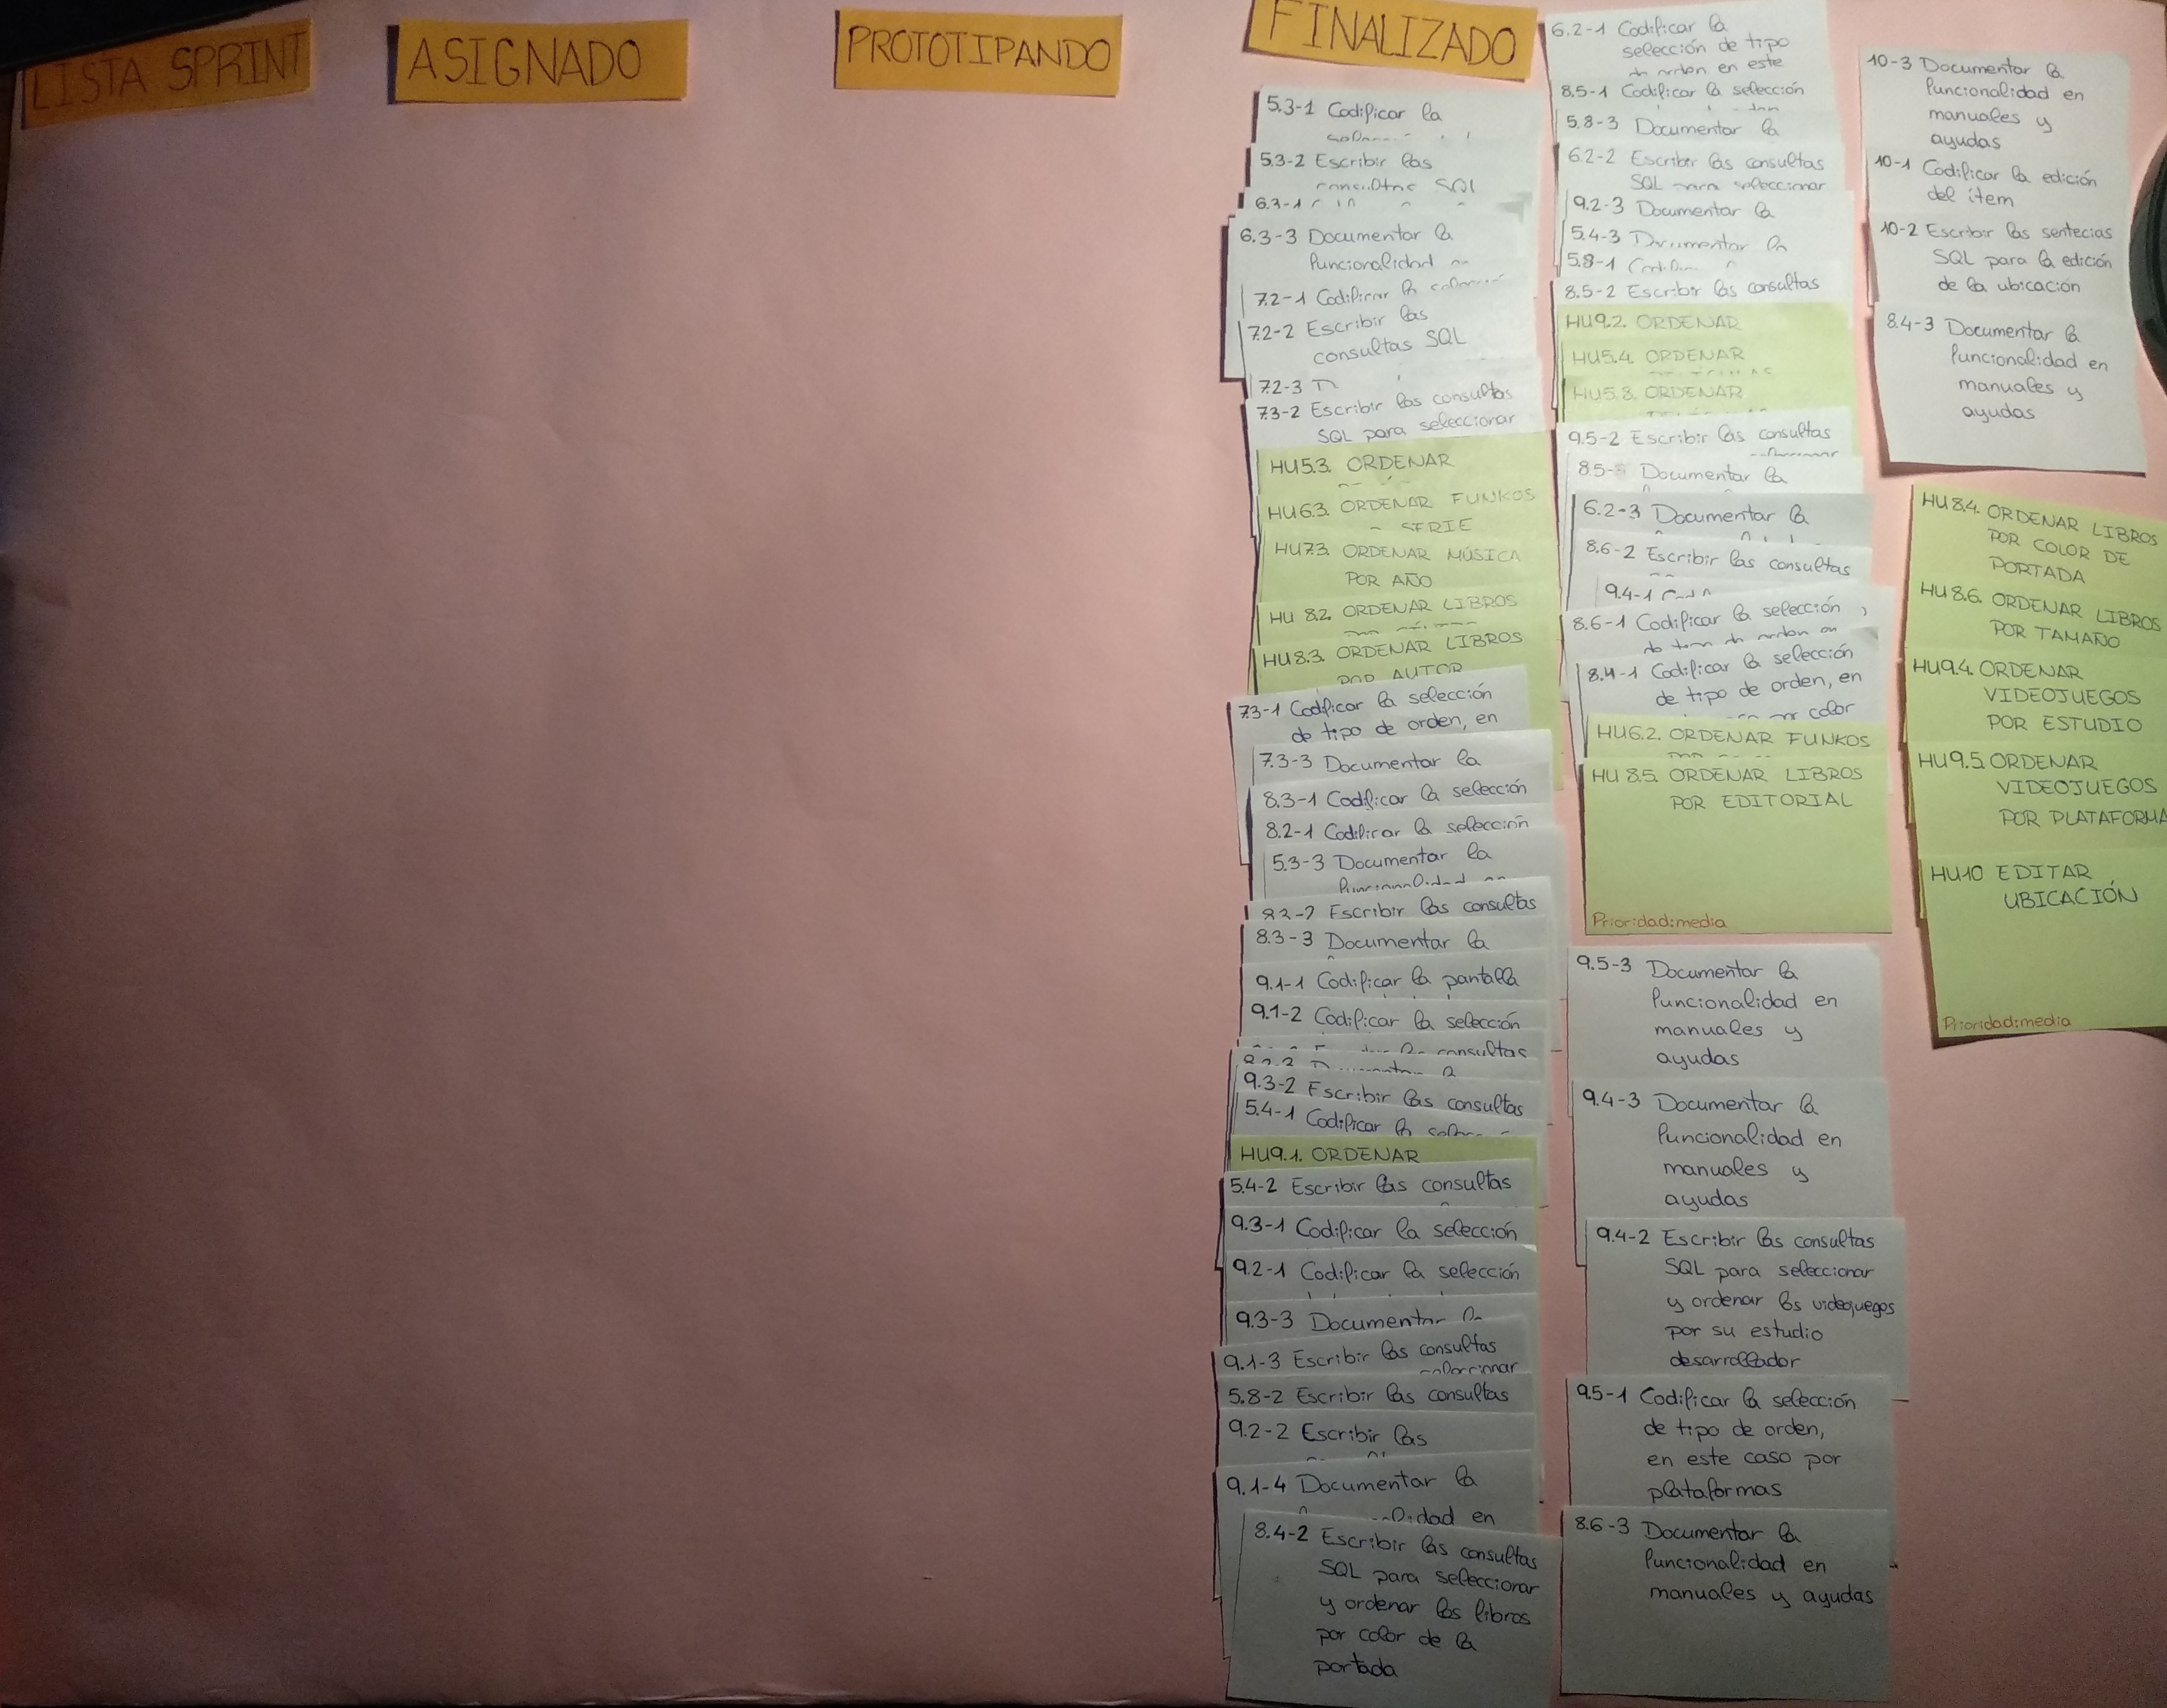 LISTA SPRINT
ASIGNADO
PROTOTIPANDO
FINALIZADO
5.3-1 Codificar la
5.3-2 Escribir las
consultas SQL
6.3-1
6.3-3 Documentar la
funcionalidad
7.2-1 Codificar la
7.2-2 Escribir las
consultas SQL
7.2-3
7.3-2 Escribir las consultas
SQL para seleccionar
HU5.3. ORDENAR
HU6.3. ORDENAR FUNKOS
SERIE
HU7.3. ORDENAR MÚSICA
POR AÑO
HU 8.2. ORDENAR LIBROS
HU8.3. ORDENAR LIBROS
POR AUTOR
7.3-1 Codificar la selección
de tipo de orden, en
7.3-3 Documentar la
8.3-1 Codificar la selección
8.2-1 Codificar la selección
5.3-3 Documentar la
funcionalidad en
Escribir las consultas
8.3-3 Documentar la
9.1-1 Codificar la pantalla
9.1-2 Codificar la selección
consultas
9.3-2 Escribir las consultas
5.4-1 Codificar la
HU9.1. ORDENAR
5.4-2 Escribir las consultas
9.3-1 Codificar la selección
9.2-1 Codificar la selección
9.3-3 Documentar la
9.1-3 Escribir las consultas
seleccionar
5.8-2 Escribir las consultas
9.2-2 Escribir las
9.1-4 Documentar la
en
8.4-2 Escribir las consultas
SQL para seleccionar
y ordenar los libros
por color de la
portada
6.2-1 Codificar la
selección de tipo
de orden en este
8.5-1 Codificar la selección
5.8-3 Documentar la
6.2-2 Escriber las consultas
SQL para seleccionar
9.2-3 Documentar la
5.4-3 Documentar la
5.8-1
8.5-2 Escribir las consultas
HU9.2. ORDENAR
HU5.4. ORDENAR
HU5.8. ORDENAR
9.5-2 Escribir las consultas
8.5-3 Documentar la
6.2-3 Documentar la
8.6-2 Escribir las consultas
9.4-1
8.6-1 Codificar la selección
de orden en
8.4-1 Codificar la selección
de tipo de orden, en
por color
HU6.2. ORDENAR FUNKOS
HU 8.5. ORDENAR LIBROS
POR EDITORIAL
Prioridad:media
9.5-3 Documentar la
funcionalidad en
manuales y
ayudas
9.4-3 Documentar la
funcionalidad en
manuales y
ayudas
9.4-2 Escribir las consultas
SQL para seleccionar
y ordenar los videojuegos
por su estudio
desarrollador
9.5-1 Codificar la selección
de tipo de orden,
en este caso por
plataformas
8.6-3 Documentar la
funcionalidad en
manuales y ayudas
10-3 Documentar la
funcionalidad en
manuales y
ayudas
10-1 Codificar la edición
del ítem
10-2 Escribir las sentecias
SQL para la edición
de la ubicación
8.4-3 Documentar la
funcionalidad en
manuales y
ayudas
HU8.4. ORDENAR LIBROS
POR COLOR DE
PORTADA
HU8.6. ORDENAR LIBROS
POR TAMAÑO
HU9.4. ORDENAR
VIDEOJUEGOS
POR ESTUDIO
HU9.5. ORDENAR
VIDEOJUEGOS
POR PLATAFORMA
HU10 EDITAR
UBICACIÓN
Prioridad:media